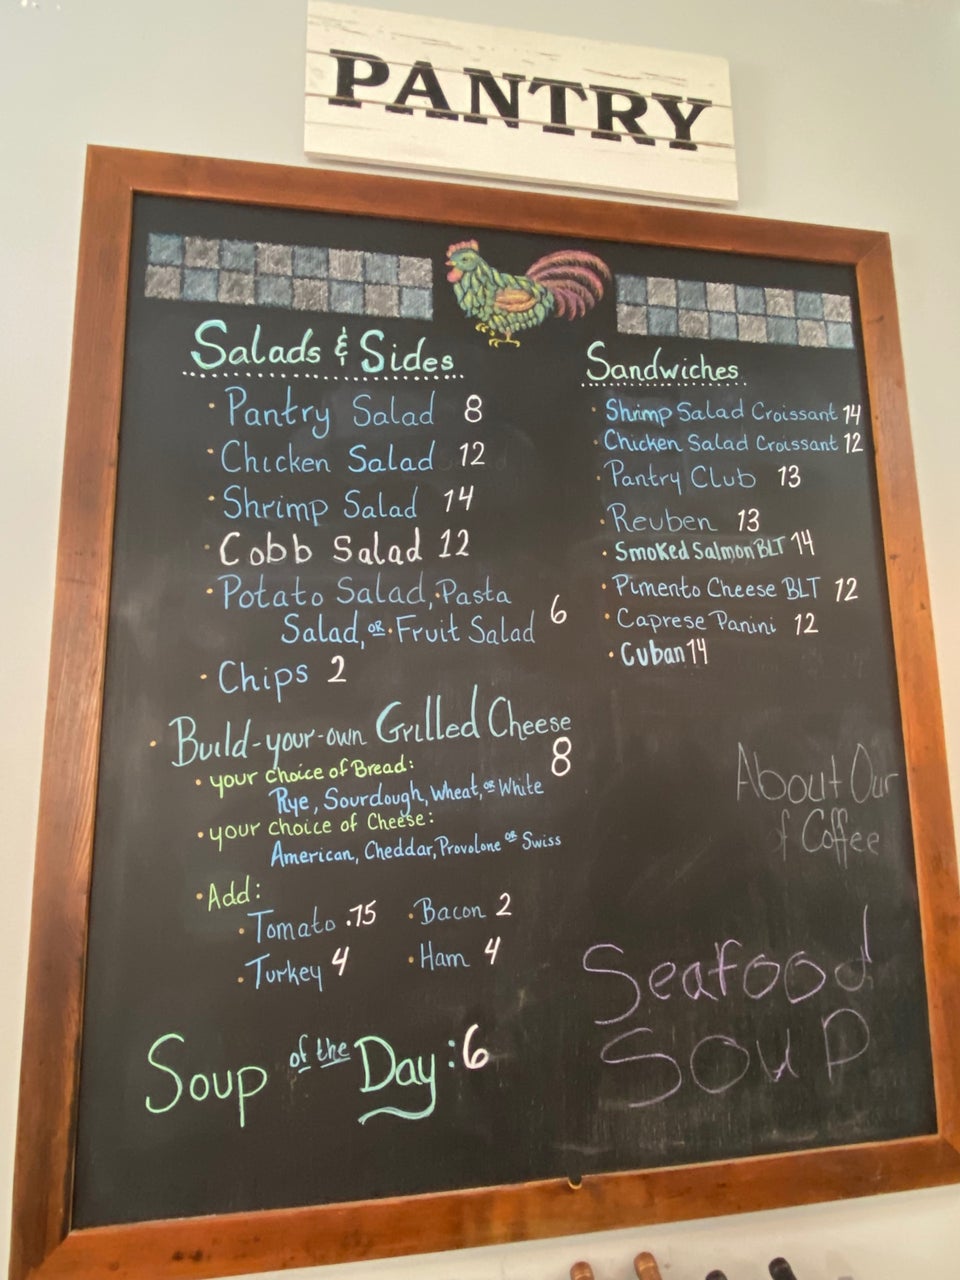 PANTRY
Salads & Sides
• Pantry Salad 8
• Chicken Salad 12
• Shrimp Salad 14
• Cobb Salad 12
• Potato Salad, • Pasta
Salad, or • Fruit Salad 6
• Chips 2
• Build-your-own Grilled Cheese
8
• your choice of Bread:
Rye, Sourdough, Wheat, or White
• your choice of Cheese:
American, Cheddar, Provolone or Swiss
• Add:
• Tomato .75 • Bacon 2
• Turkey 4 • Ham 4
Soup of the Day: 6
Sandwiches
• Shrimp Salad Croissant 14
• Chicken Salad Croissant 12
• Pantry Club 13
• Reuben 13
• Smoked Salmon BLT 14
• Pimento Cheese BLT 12
• Caprese Panini 12
• Cuban 14
About Our
f Coffee
Seafood
Soup